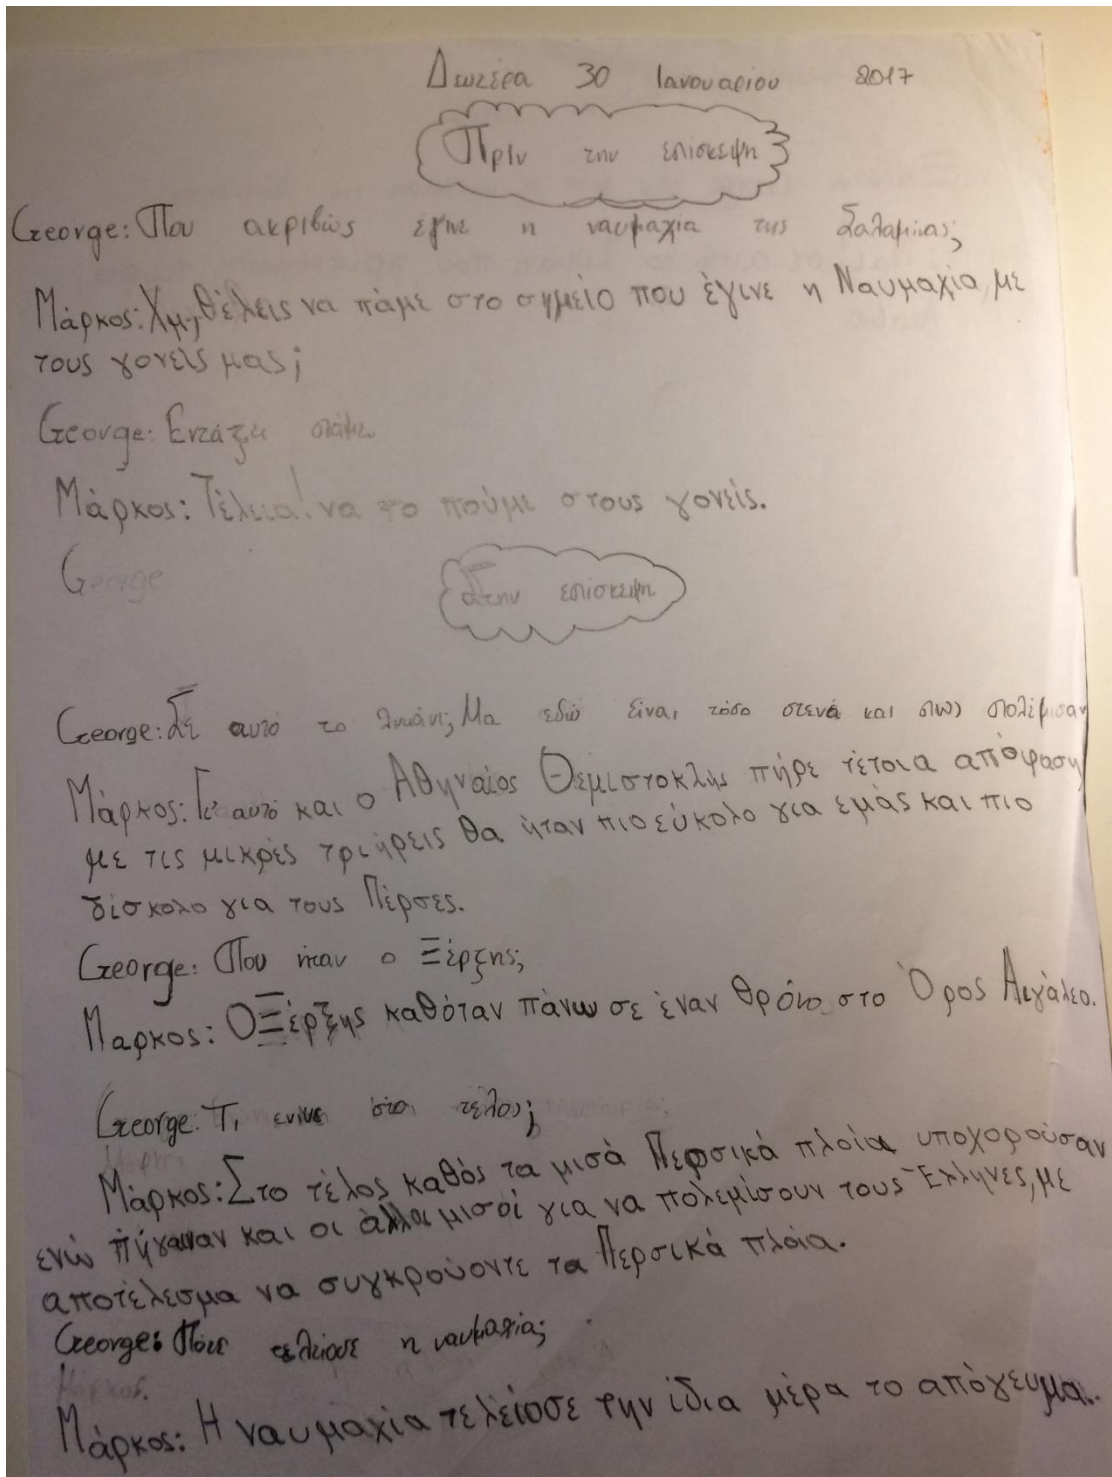 Δευτέρα 30 Ιανουαρίου 2017
Πριν την επίσκεψη
George: Που ακριβώς έγινε η ναυμαχία της Σαλαμίνας;
Μάρκος: Χμ, θέλεις να πάμε στο σημείο που έγινε η Ναυμαχία με
τους γονείς μας;
George: Εντάξει πάμε
Μάρκος: Τέλεια! να το πούμε στους γονείς.
George
Στην επίσκεψη
George: Σε αυτό το λιμάνι; Μα εδώ είναι τόσο στενά και πως πολέμισαν
Μάρκος: Γι αυτό και ο Αθηναίος Θεμιστοκλής πήρε τέτοια απόφαση
με τις μικρές τριήρεις θα ήταν πιο εύκολο για εμάς και πιο
δίσκολο για τους Πέρσες.
George: Που ήταν ο Ξέρξης;
Μαρκος: Ο Ξέρξης καθόταν πάνω σε έναν θρόνο στο Όρος Αιγάλεο.
George: Τι εγινε στο τέλος;
Μάρκος: Στο τέλος καθός τα μισά Περσικά πλοία υποχορούσαν
ενώ πήγαιναν και οι άλλοι μισοί για να πολεμίσουν τους Έλληνες, με
αποτέλεσμα να συγκρούοντε τα Περσικά πλοία.
George: Πότε τελείοσε η ναυμαχία;
Μάρκος.
Μάρκος: Η ναυμαχία τελείοσε την ίδια μέρα το απόγευμα.